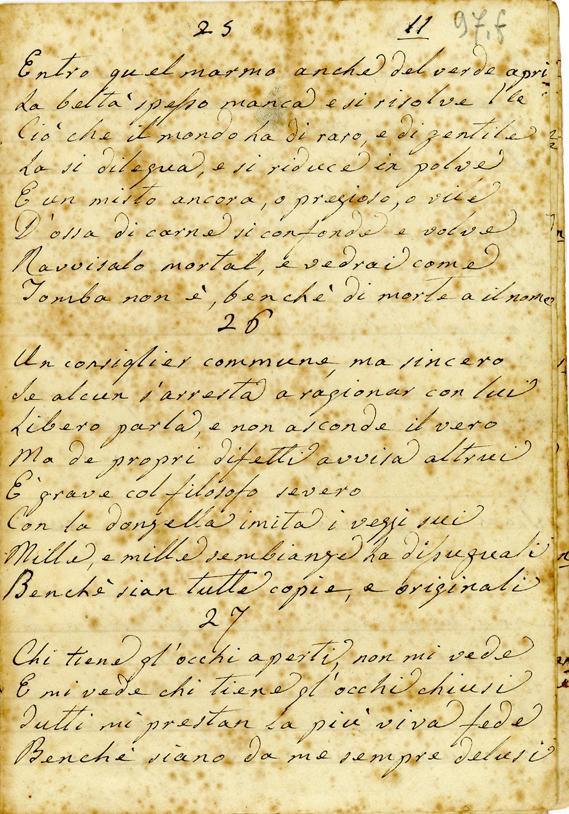 25 11 97.f
Entro quel marmo anche del verde apri
La beltà spesso manca e si risolve
Ciò che il mondo ha di raro, e di gentile
La si dilegua, e si riduce in polve
E un misto ancora, o pregioso, o vile
D'ossa di carne si confonde e volve
Ravvisalo mortal, e vedrai come
Tomba non è, benchè di morte a il nome
26
Un consiglier commune, ma sincero
Se alcun s'arresta a ragionar con lui
Libero parla, e non asconde il vero
Ma de propri difetti avvisa altrui
È grave col filosofo severo
Con la dongella imita i veggi sui
Mille, e mille sembiange ha disuguali
Benchè sian tutte copie, e originali
27
Chi tiene gl'occhi aperti, non mi vede
E mi vede chi tiene gl'occhi chiusi
Tutti mi prestan la più viva fede
Benchè siano da me sempre delusi